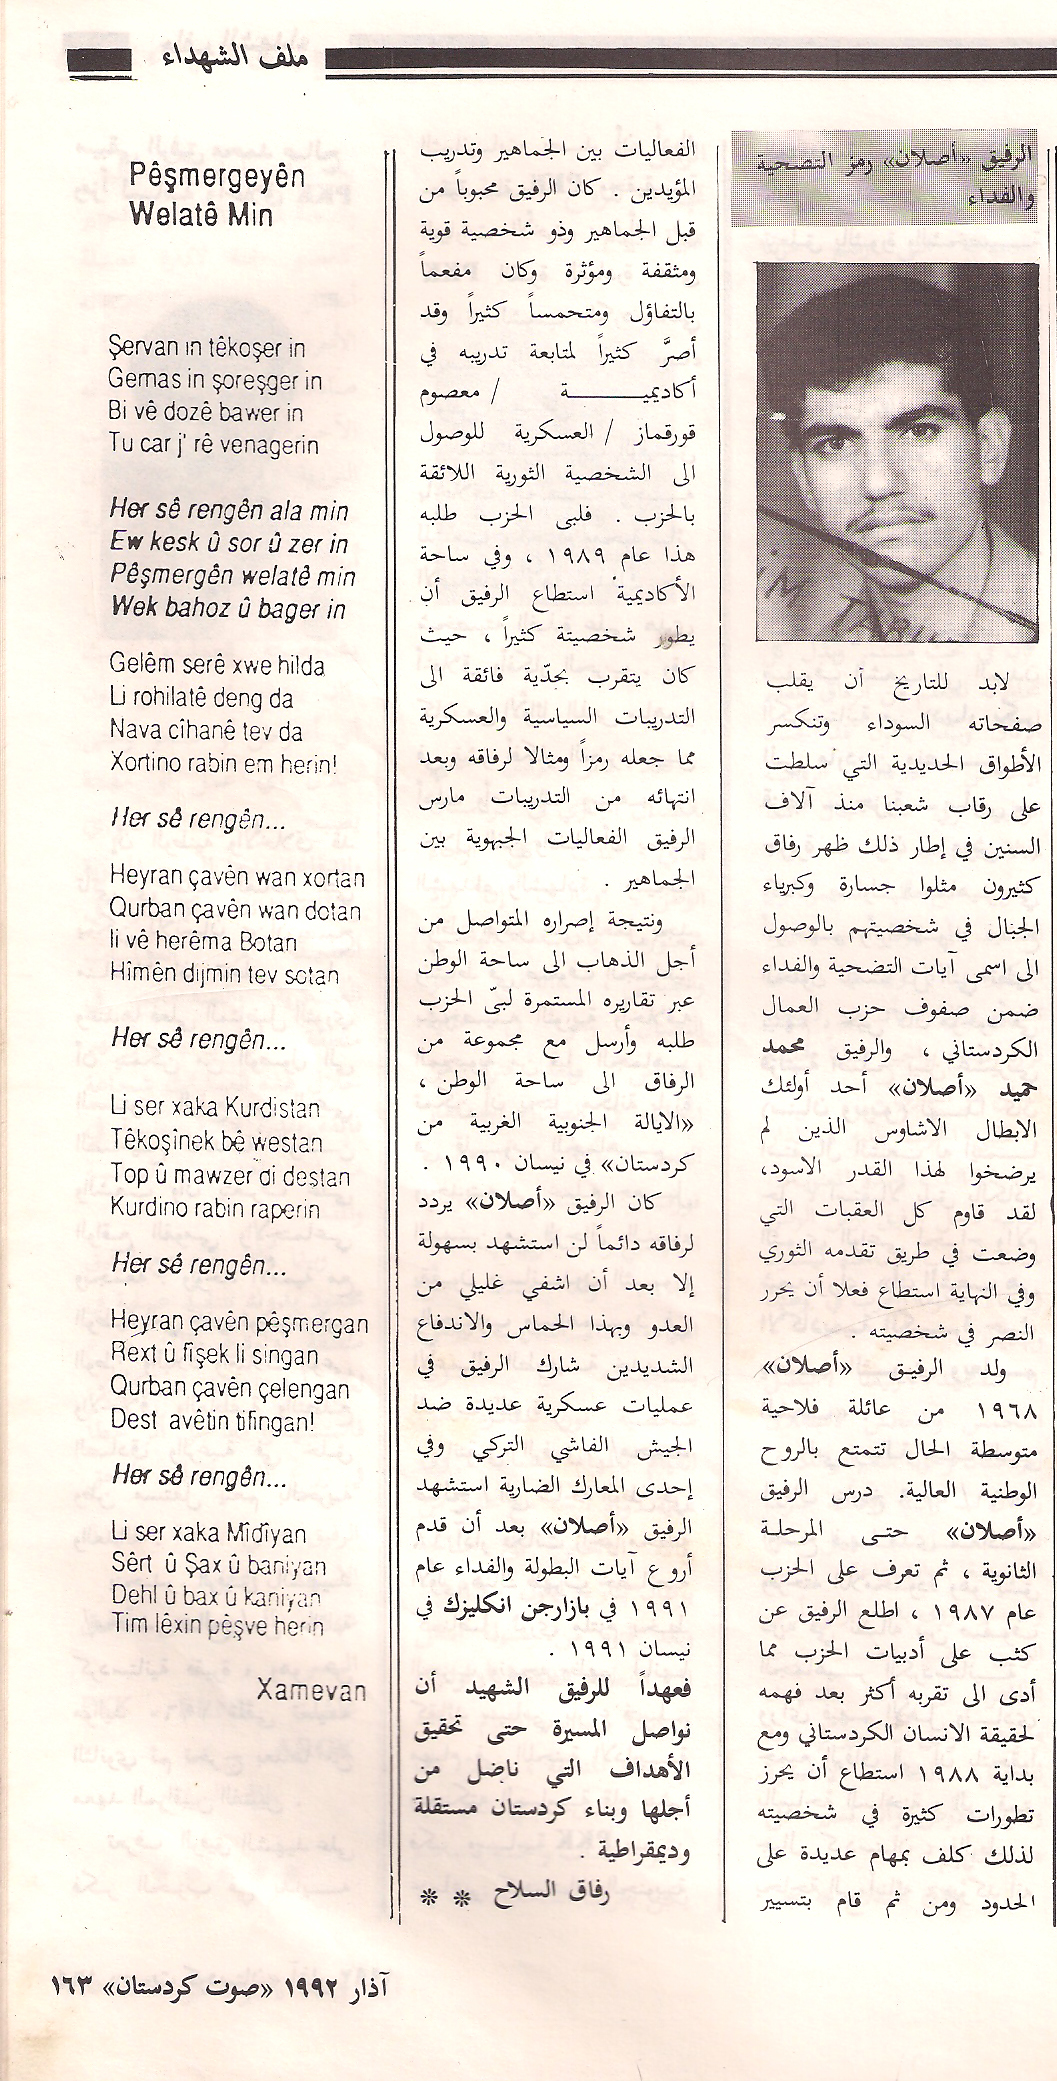 ملف الشهداء
الرفيق «أصلان» رمز التضحية
والفداء
لابد للتاريخ أن يقلب
صفحاته السوداء وتنكسر
الأطواق الحديدية التي سلطت
على رقاب شعبنا منذ آلاف
السنين في إطار ذلك ظهر رفاق
كثيرون مثلوا جسارة وكبرياء
الجبال في شخصيتهم بالوصول
الى اسمى آيات التضحية والفداء
ضمن صفوف حزب العمال
الكردستاني ، والرفيق محمد
حميد «أصلان» أحد أولئك
الابطال الاشاوس الذين لم
يرضخوا لهذا القدر الاسود،
لقد قاوم كل العقبات التي
وضعت في طريق تقدمه الثوري
وفي النهاية استطاع فعلا أن يحرر
النصر في شخصيته .
ولد الرفيق «أصلان»
١٩٦٨ من عائلة فلاحية
متوسطة الحال تتمتع بالروح
الوطنية العالية. درس الرفيق
«أصلان» حتى المرحلة
الثانوية ، ثم تعرف على الحزب
عام ١٩٨٧ ، اطلع الرفيق عن
كثب على أدبيات الحزب مما
أدى الى تقربه أكثر بعد فهمه
لحقيقة الانسان الكردستاني ومع
بداية ١٩٨٨ استطاع أن يحرز
تطورات كثيرة في شخصيته
لذلك كلف بمهام عديدة على
الحدود ومن ثم قام بتسيير
الفعاليات بين الجماهير وتدريب
المؤيدين . كان الرفيق محبوباً من
قبل الجماهير وذو شخصية قوية
ومثقفة ومؤثرة وكان مفعماً
بالتفاؤل ومتحمساً كثيراً وقد
أصرَّ كثيراً لمتابعة تدريبه في
أكاديميـــــــة / معصوم
قورقماز / العسكرية للوصول
الى الشخصية الثورية اللائقة
بالحزب . فلبى الحزب طلبه
هذا عام ١٩٨٩ ، وفي ساحة
الأكاديمية استطاع الرفيق أن
يطور شخصيتة كثيراً ، حيث
كان يتقرب بجدّية فائقة الى
التدريبات السياسية والعسكرية
مما جعله رمزاً ومثالا لرفاقه وبعد
انتهائه من التدريبات مارس
الرفيق الفعاليات الجبهوية بين
الجماهير .
ونتيجة إصراره المتواصل من
أجل الذهاب الى ساحة الوطن
عبر تقاريره المستمرة لبىّ الحزب
طلبه وأرسل مع مجموعة من
الرفاق الى ساحة الوطن ،
«الايالة الجنوبية الغربية من
كردستان» في نيسان ١٩٩٠ .
كان الرفيق «أصلان» يردد
لرفاقه دائماً لن استشهد بسهولة
إلا بعد أن اشفي غليلي من
العدو وبهذا الحماس والاندفاع
الشديدين شارك الرفيق في
عمليات عسكرية عديدة ضد
الجيش الفاشي التركي وفي
إحدى المعارك الضارية استشهد
الرفيق «أصلان» بعد أن قدم
أروع آيات البطولة والفداء عام
١٩٩١ في بازارجن انكليزك في
نيسان ١٩٩١ .
فعهداً للرفيق الشهيد أن
نواصل المسيرة حتى تحقيق
الأهداف التي ناضل من
أجلها وبناء كردستان مستقلة
وديمقراطية .
رفاق السلاح ** 
Pêşmergeyên
Welatê Min
Şervan in têkoşer in
Gernas in şoreşger in
Bi vê dozê bawer in
Tu car j' rê venagerin
Her sê rengên ala min
Ew kesk û sor û zer in
Pêşmergên welatê min
Wek bahoz û bager in
Gelêm serê xwe hilda
Li rohilatê deng da
Nava cîhanê tev da
Xortino rabin em herin!
Her sê rengên...
Heyran çavên wan xortan
Qurban çavên wan dotan
li vê herêma Botan
Hîmên dijmin tev sotan
Her sê rengên...
Li ser xaka Kurdistan
Têkoşînek bê westan
Top û mawzer di destan
Kurdino rabin raperin
Her sê rengên...
Heyran çavên pêşmergan
Rext û fîşek li singan
Qurban çavên çelengan
Dest avêtin tifingan!
Her sê rengên...
Li ser xaka Mîdîyan
Sêrt û Şax û baniyan
Dehl û bax û kaniyan
Tim lêxin pêşve herin
Xamevan
آذار ١٩٩٢ «صوت كردستان» ١٦٣